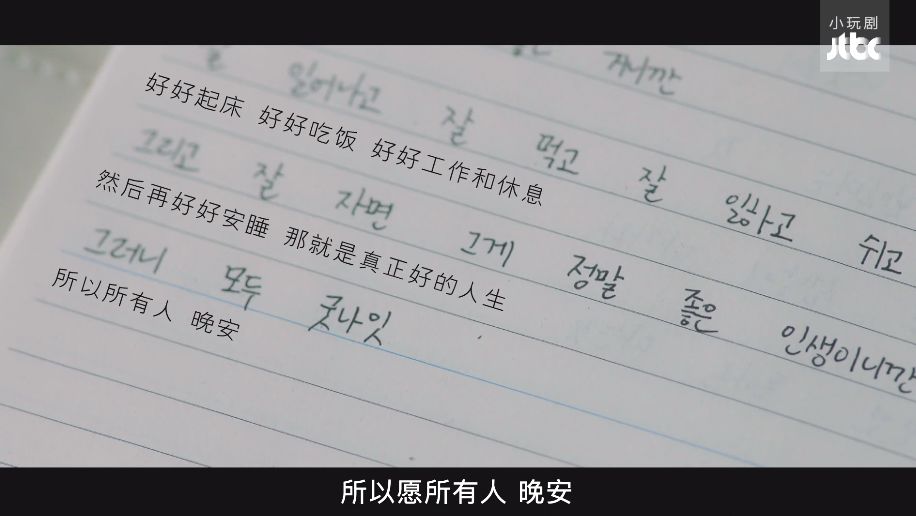 小玩剧
jtbc
자니깐
일어나고 잘 먹고 잘 일하고 쉬고
好好起床 好好吃饭 好好工作和休息
그리고 잘 자면 그게 정말 좋은 인생이니깐
然后再好好安睡 那就是真正好的人生
그러니 모두 굿나잇
所以所有人 晚安
所以愿所有人 晚安